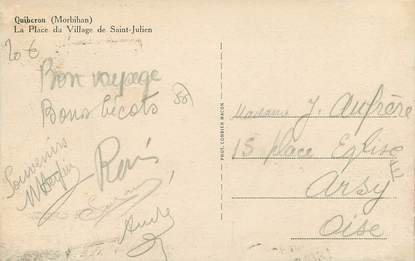 Quiberon (Morbihan)
La Place du Village de Saint-Julien
20 €
Bon voyage
Bons bécots
56
Souvenirs
René
André
PHOT. COMBIER MACON
Madame J. Aufrère
15 place Eglise
Arsy
Oise